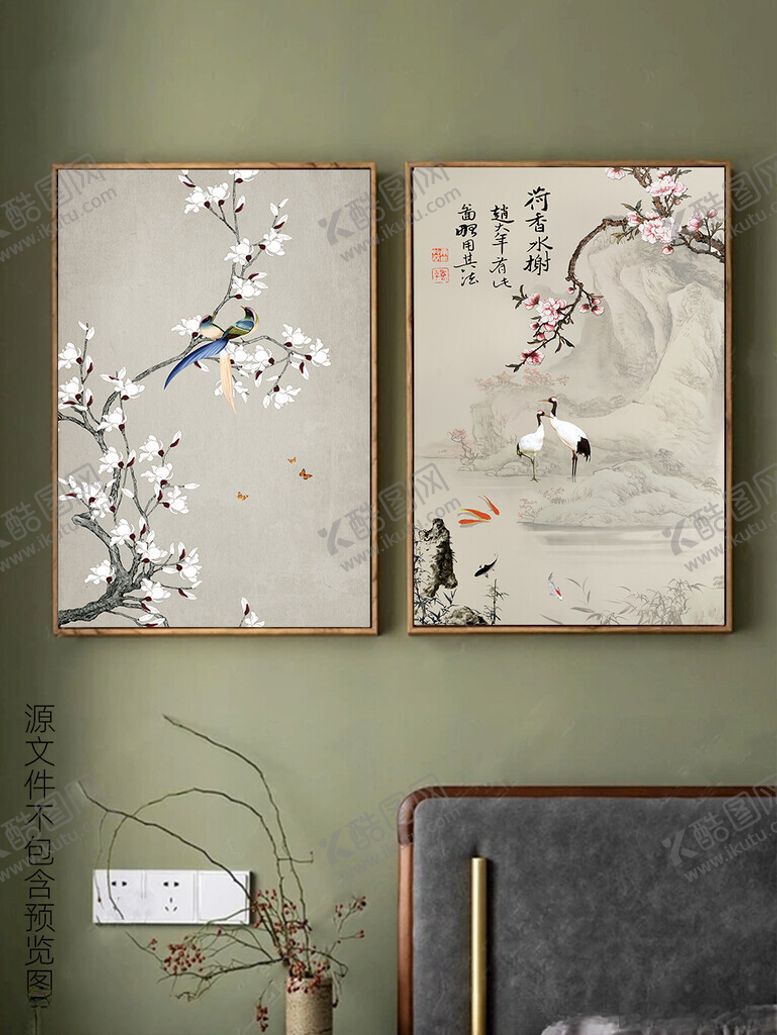 荷香水榭
趙大年有此
啚眂用其法
源文件不包含预览图
酷图网
www.ikutu.com